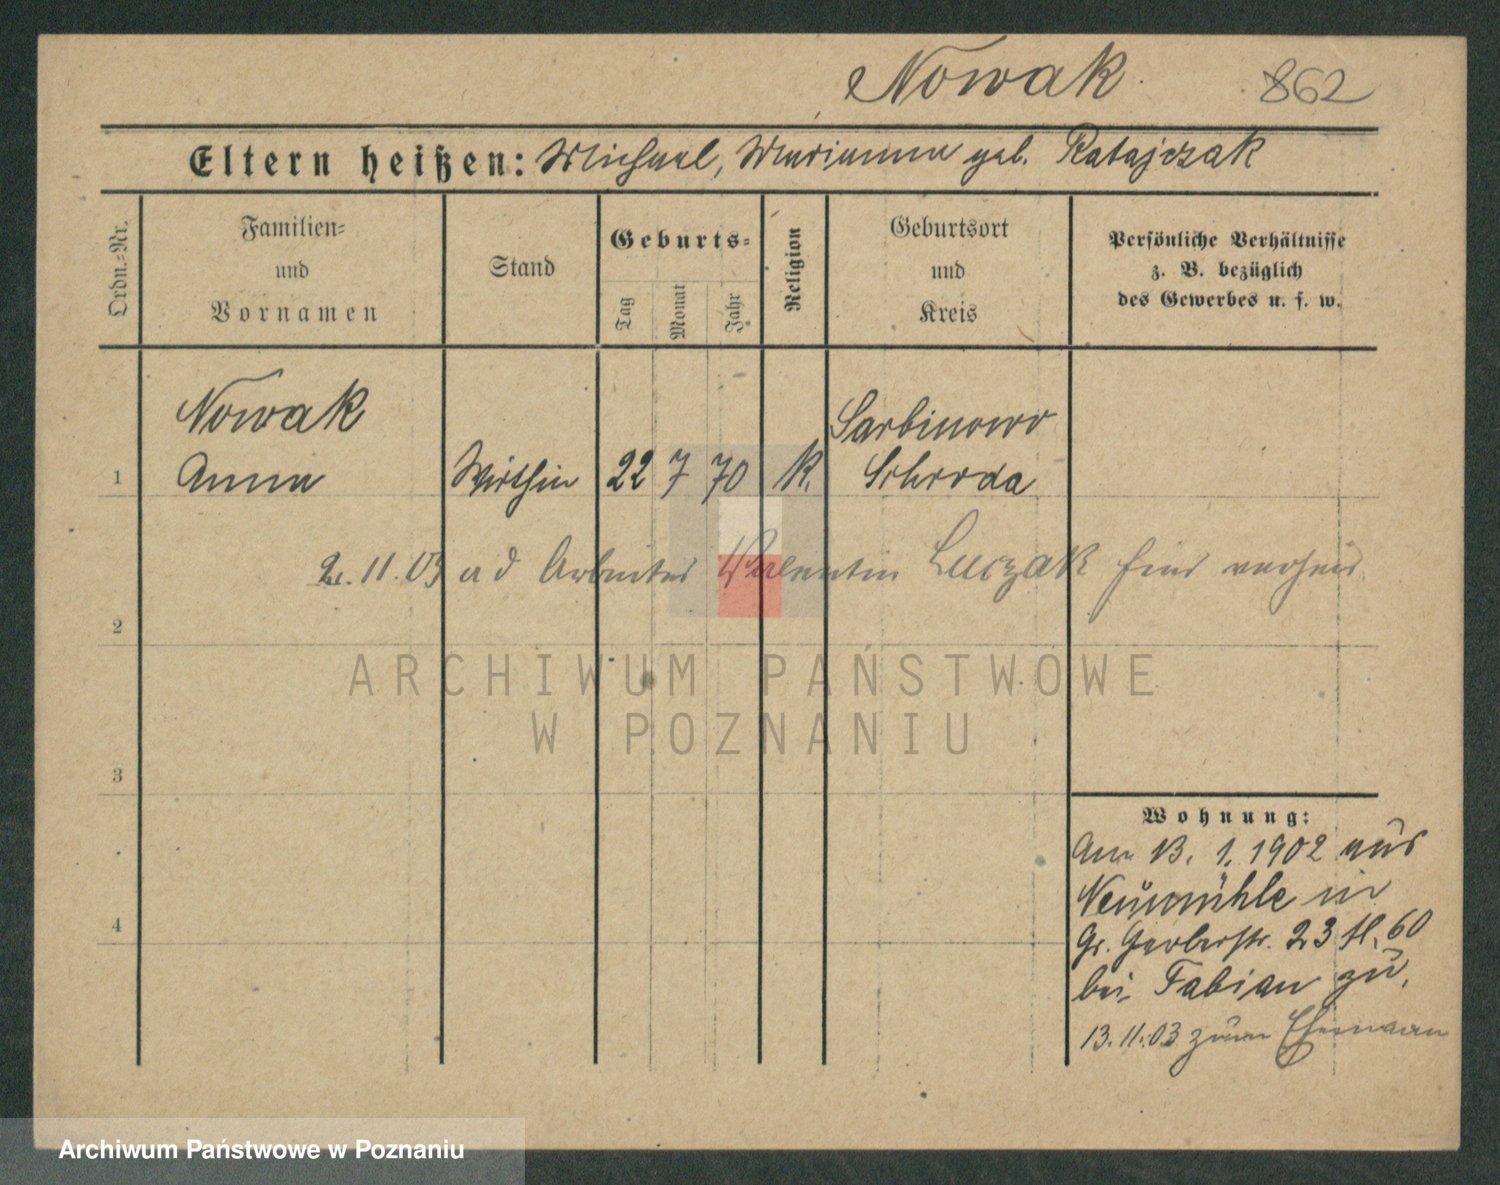 Nowak 862
Eltern heißen: Michael, Marianna geb. Ratajczak
Ordn.-Nr.
Familien-
und
Vornamen
Stand
Geburts-
Tag
Monat
Jahr
Religion
Geburtsort
und
Kreis
Persönliche Verhältnisse
z. B. bezüglich
des Gewerbes u. s. w.
Nowak Sarbinowo
1 Anna Wirthin 22 7 70 k. Schroda
2.11.03 Arbeiter Valentin Luczak hier verheir
2
ARCHIWUM PAŃSTWOWE
W POZNANIU
3
Wohnung:
Am 13. 1. 1902 aus
Neumühle in
4
Gr. Gerberstr. 23 II, 60
bei Fabian zu.
13.11.03 zum Ehemann
Archiwum Państwowe w Poznaniu